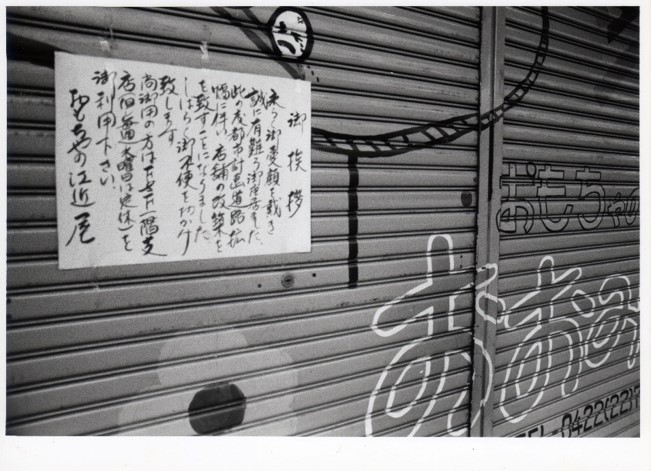 御挨拶
永らく御愛顧を戴き
誠に有難う御座居ました
此の度都市計画道路拡
幅に伴い店舗の改築を
を致すことになりました
しばらく御不便をおかけ
致します
尚御用の方は
火曜日は定休)を
御利用下さい。
おもちゃの
おもちゃの
おおみ
TEL-0422(22)7